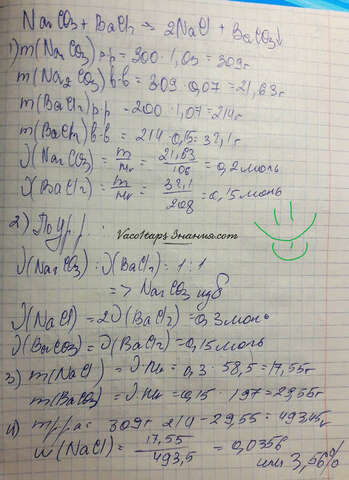 Na₂CO₃ + BaCl₂ → 2NaCl + BaCO₃↓
1) m(Na₂CO₃)р-р = 300 · 1,03 = 309г
m(Na₂CO₃)в-в = 309 · 0,07 = 21,63г
m(BaCl₂)р-р = 200 · 1,07 = 214г
m(BaCl₂)в-в = 214 · 0,15 = 32,1г
ν(Na₂CO₃) = m/Mr = 21,63/106 = 0,2 моль
ν(BaCl₂) = m/Mr = 32,1/208 = 0,15 моль
2) По ур.р.:
ν(Na₂CO₃) : ν(BaCl₂) = 1 : 1
=> Na₂CO₃ изб
ν(NaCl) = 2ν(BaCl₂) = 0,3 моль
ν(BaCO₃) = ν(BaCl₂) = 0,15 моль
3) m(NaCl) = ν·Mr = 0,3 · 58,5 = 17,55г
m(BaCO₃) = ν·Mr = 0,15 · 197 = 29,55г
4) m р-ра = 309 + 214 - 29,55 = 493,45г
w(NaCl) = 17,55/493,5 = 0,0356
или 3,56%